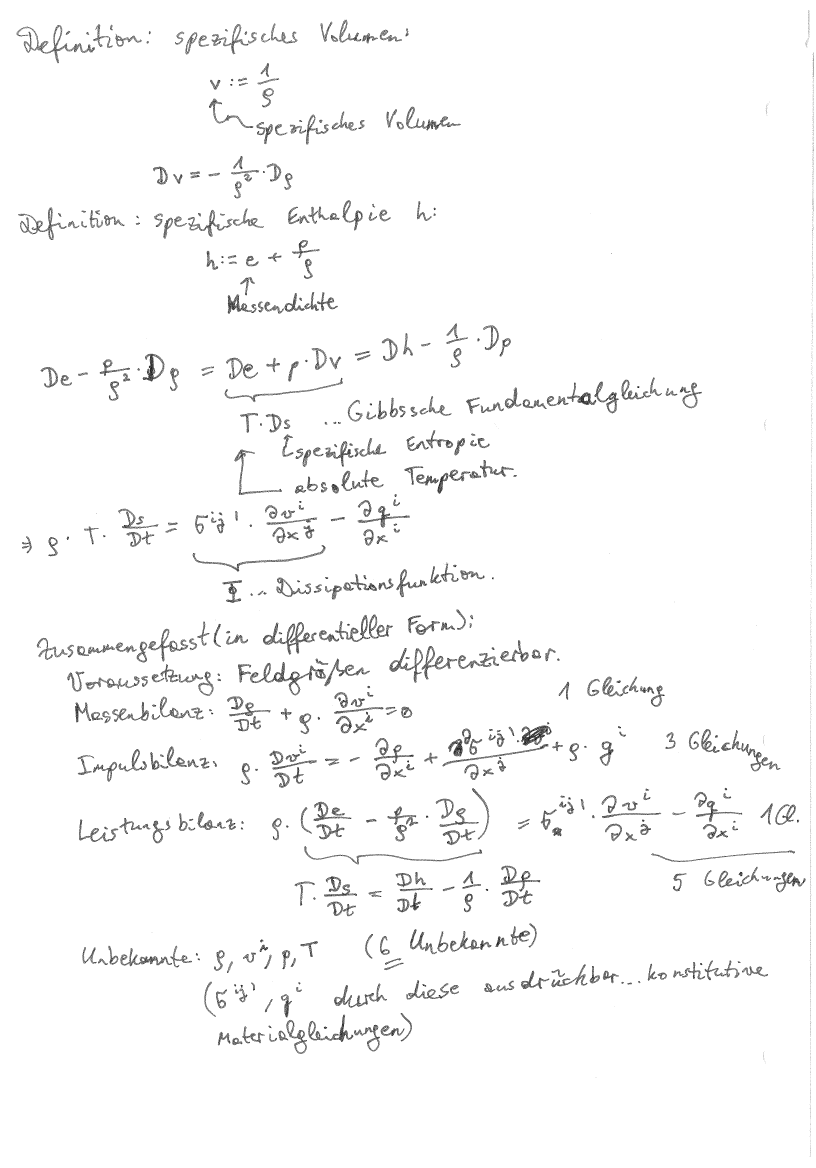 Definition: spezifisches Volumen:
v := 1/ρ
spezifisches Volumen
Dv = - 1/ρ² · Dρ
Definition: spezifische Enthalpie h:
h := e + p/ρ
Massendichte
De - p/ρ² · Dρ = De + p · Dv = Dh - 1/ρ · Dp
T · Ds ... Gibbssche Fundamentalgleichung
spezifische Entropie
absolute Temperatur.
⇒ ρ · T · Ds/Dt = σ^ij' · ∂v^i/∂x^j - ∂q^i/∂x^i
Φ ... Dissipationsfunktion.
Zusammengefasst (in differentieller Form):
Voraussetzung: Feldgrößen differenzierbar.
Massenbilanz: Dρ/Dt + ρ · ∂v^i/∂x^i = 0 1 Gleichung
Impulsbilanz: ρ · Dv^i/Dt = - ∂p/∂x^i + ∂σ^ij'/∂x^j + ρ · g^i 3 Gleichungen
Leistungsbilanz: ρ · (De/Dt - p/ρ² · Dρ/Dt) = σ^ij' · ∂v^i/∂x^j - ∂q^i/∂x^i 1 Gl.
T · Ds/Dt = Dh/Dt - 1/ρ · Dp/Dt 5 Gleichungen
Unbekannte: ρ, v^i, p, T (6 Unbekannte)
(σ^ij', q^i durch diese ausdrückbar... konstitutive
Materialgleichungen)